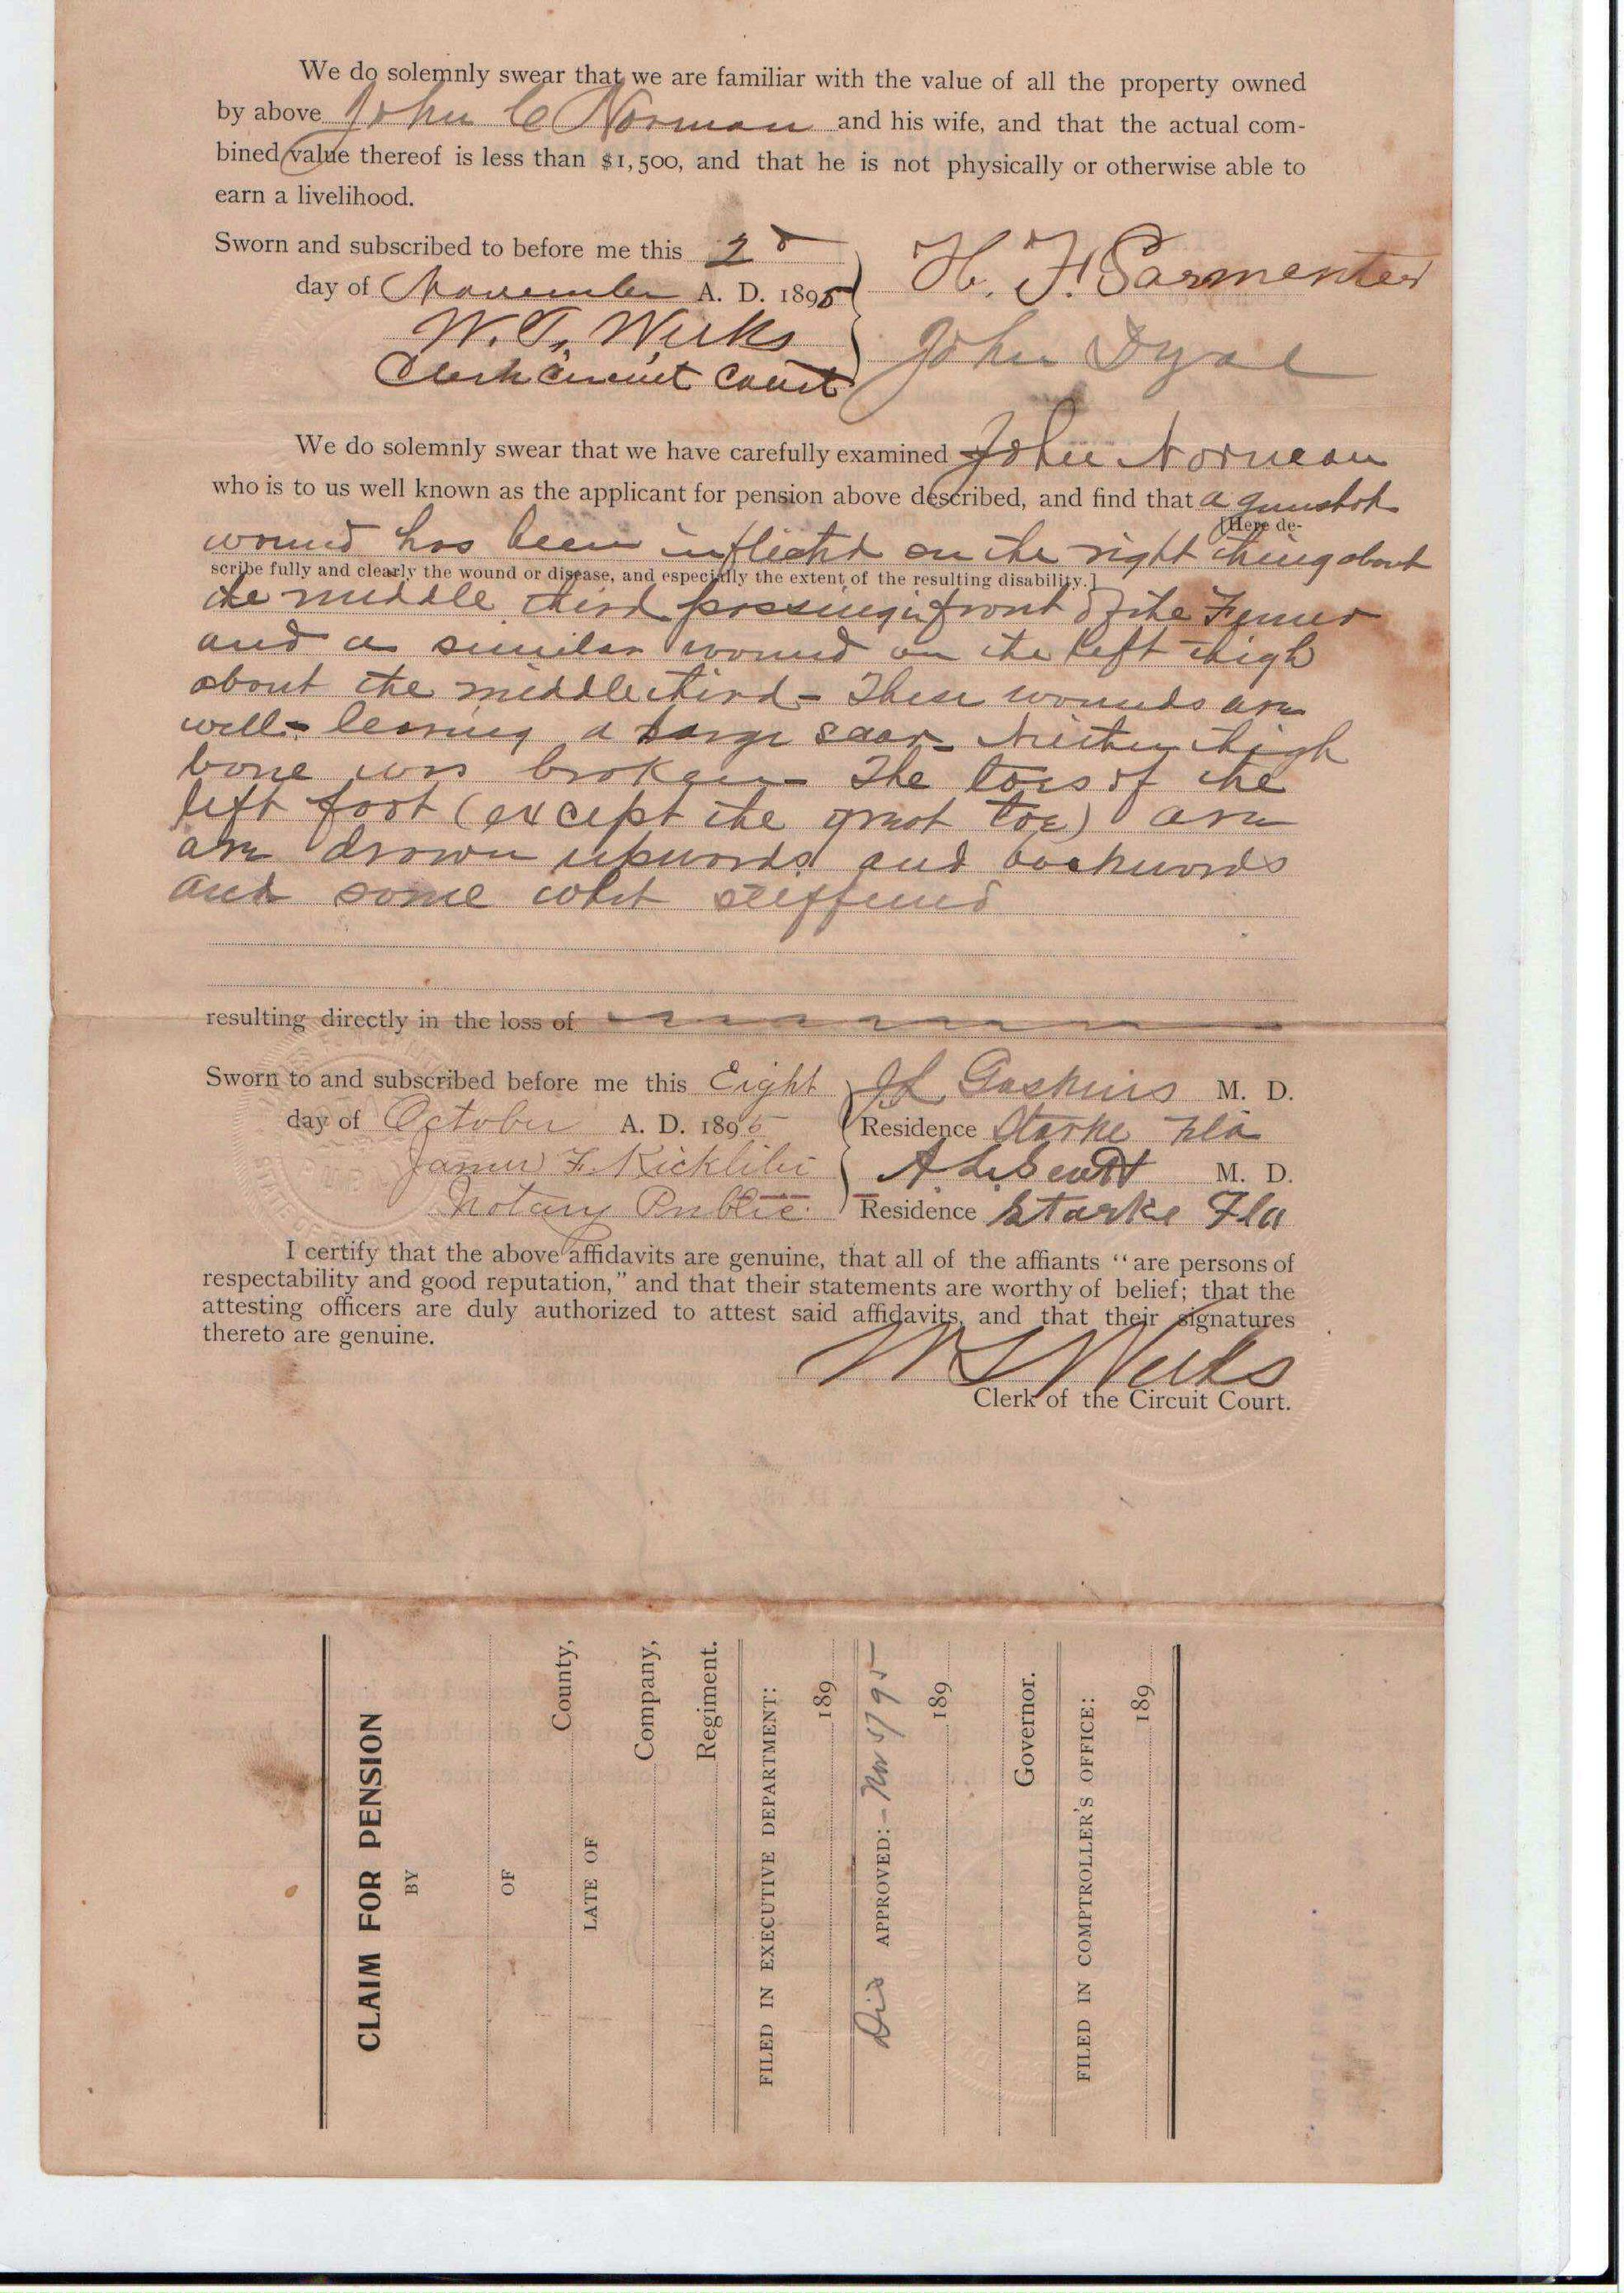 We do solemnly swear that we are familiar with the value of all the property owned
by above John C Norman and his wife, and that the actual com-
bined value thereof is less than $1,500, and that he is not physically or otherwise able to
earn a livelihood.
Sworn and subscribed to before me this 2d
day of November A. D. 1895
H. F. Sarmenter
W. T. Weeks
John Dyal
Clerk Circuit Court
We do solemnly swear that we have carefully examined John Norman
who is to us well known as the applicant for pension above described, and find that a gunshot
[Here de-
wound has been inflicted on the right thing about
scribe fully and clearly the wound or disease, and especially the extent of the resulting disability.]
the middle third passing in front of the Femur
and a similar wound on the left thigh
about the middle third - These wounds are
well - leaving a large scar - Neither thigh
bone was broken - The toes of the
left foot (except the great toe) are
are drawn upwards and backwords
and some what stiffened
resulting directly in the loss of
Sworn to and subscribed before me this Eight
J L Gaskins M. D.
day of October A. D. 1895
Residence Starke Fla
James F. Kicklite
A. L. Scott M. D.
Notary Public
Residence Starke Fla
I certify that the above affidavits are genuine, that all of the affiants "are persons of
respectability and good reputation," and that their statements are worthy of belief; that the
attesting officers are duly authorized to attest said affidavits, and that their signatures
thereto are genuine.
W T Weeks
Clerk of the Circuit Court.
CLAIM FOR PENSION
BY
OF
County,
LATE OF
Company,
Regiment.
FILED IN EXECUTIVE DEPARTMENT:
189
Dis APPROVED: - Nov 5/95
189
Governor.
FILED IN COMPTROLLER'S OFFICE:
189